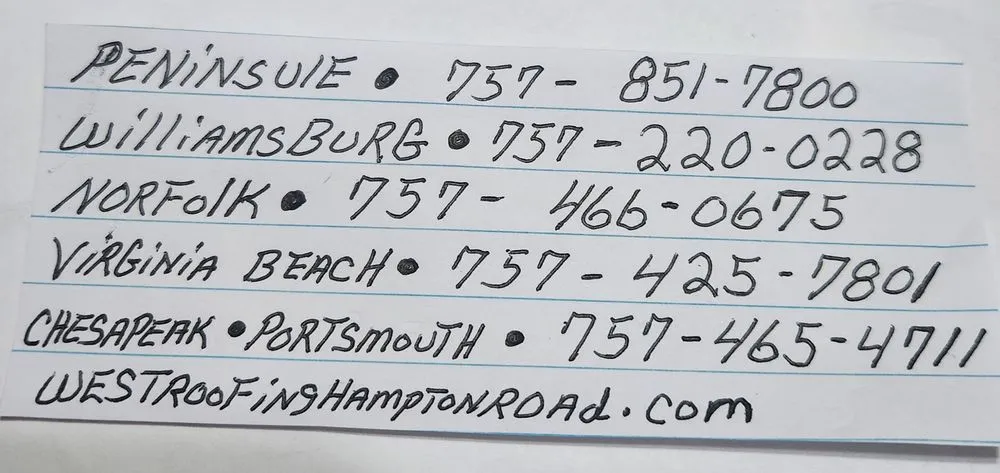 PENINSULE • 757- 851-7800
WilliAMSBURG • 757-220-0228
NORFolK • 757- 466-0675
ViRGiNiA BEACH • 757-425-7801
CHESAPEAK • PORTSmOUTH • 757-465-4711
WESTRooFingHAmpTONROAd.com